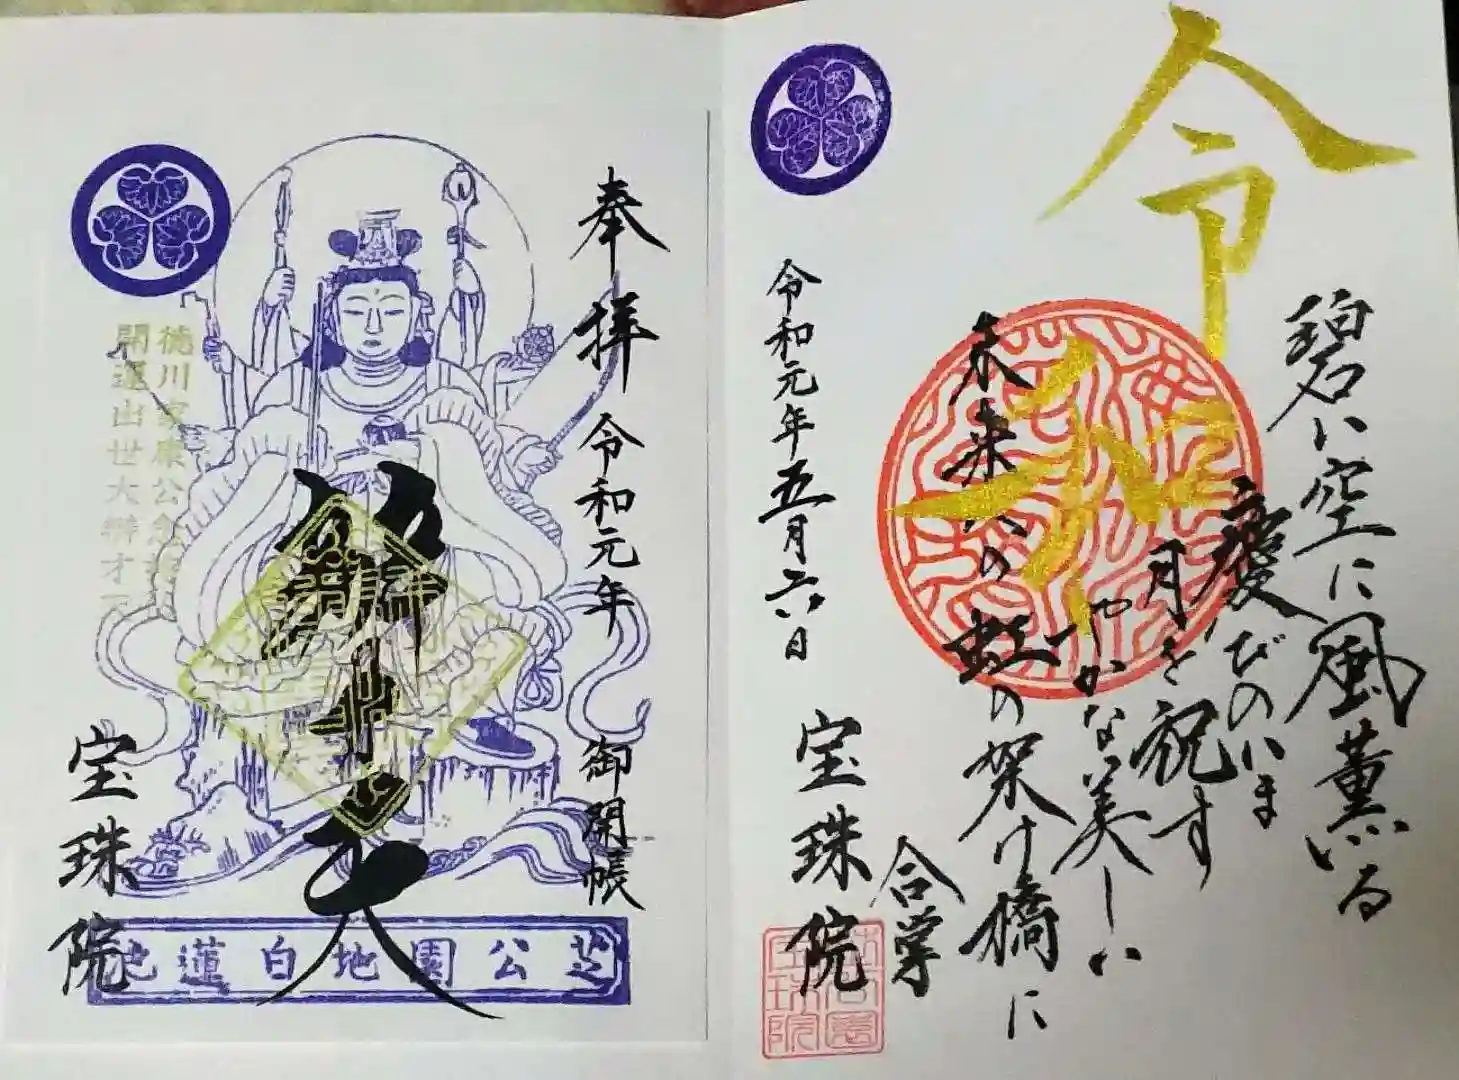 令和
碧い空に風薫る
慶びのいま
月を祝す
やかな美しい
未来への虹の架け橋に
合掌
令和元年五月六日
宝珠院
奉拝 令和元年 御開帳
辨才天
徳川家康公
開運出世大辨才
宝珠院
芝公園地白蓮池